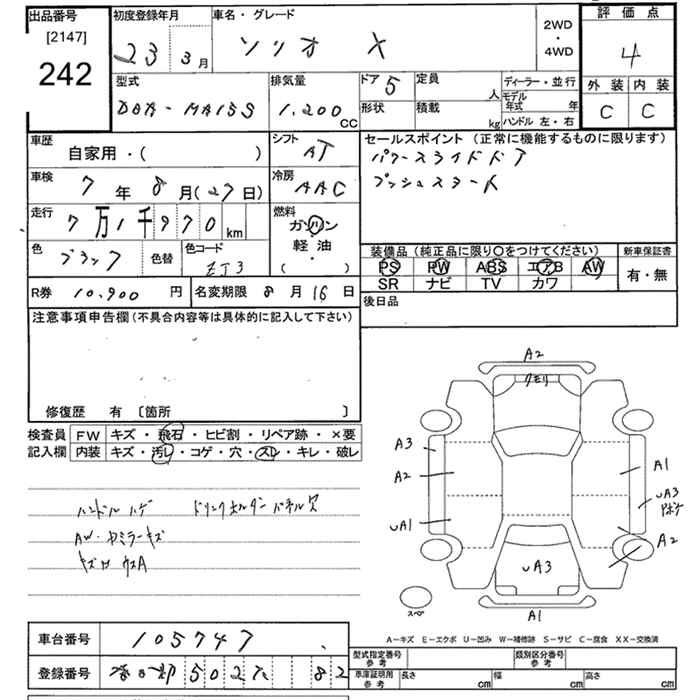 出品番号 初度登録年月 車名・グレード 2WD・4WD 評価点
[2147] 242 23 3月 ソリオ X 4
型式 排気量 ドア 5 定員 人 ディーラー・並行 外装 内装
DBA-MA15S 1,200 CC 形状 積載 kg モデル年式 年 ハンドル 左・右 C C
車歴 自家用・( ) シフト AT セールスポイント (正常に機能するものに限ります)
車検 7年 8月(27日) 冷房 AAC パワースライドドア
プッシュスタート
走行 7万1千970km 燃料 ガソリン 軽油 ( ・ )
色 ブラック 色替 色コード ZJ3 装備品 (純正品に限り〇をつけてください) 新車保証書
PS PW ABS エアB AW 有・無
SR ナビ TV カワ
R券 10,900円 名変期限 8月16日 後日品
注意事項申告欄 (不具合内容等は具体的に記入して下さい)
修復歴 有 〔箇所 〕
検査員 FW キズ・飛石・ヒビ割・リペア跡・×要
記入欄 内装 キズ・汚レ・コゲ・穴・スレ・キレ・破レ
ハンドルハゲ ドリンクホルダーパネル欠
AW・ドミラーキズ
A2
クモリ
A3
A2
A1
UA3
UA1
A2
UA3
スペ
A1
A－キズ E－エクボ U－凹み W－補修跡 S－サビ C－腐食 XX－交換済
車台番号 105747 型式指定番号 参考 類別区分番号 参考
登録番号 502 82 車庫証明用 参考 長さ cm 幅 cm 高さ cm